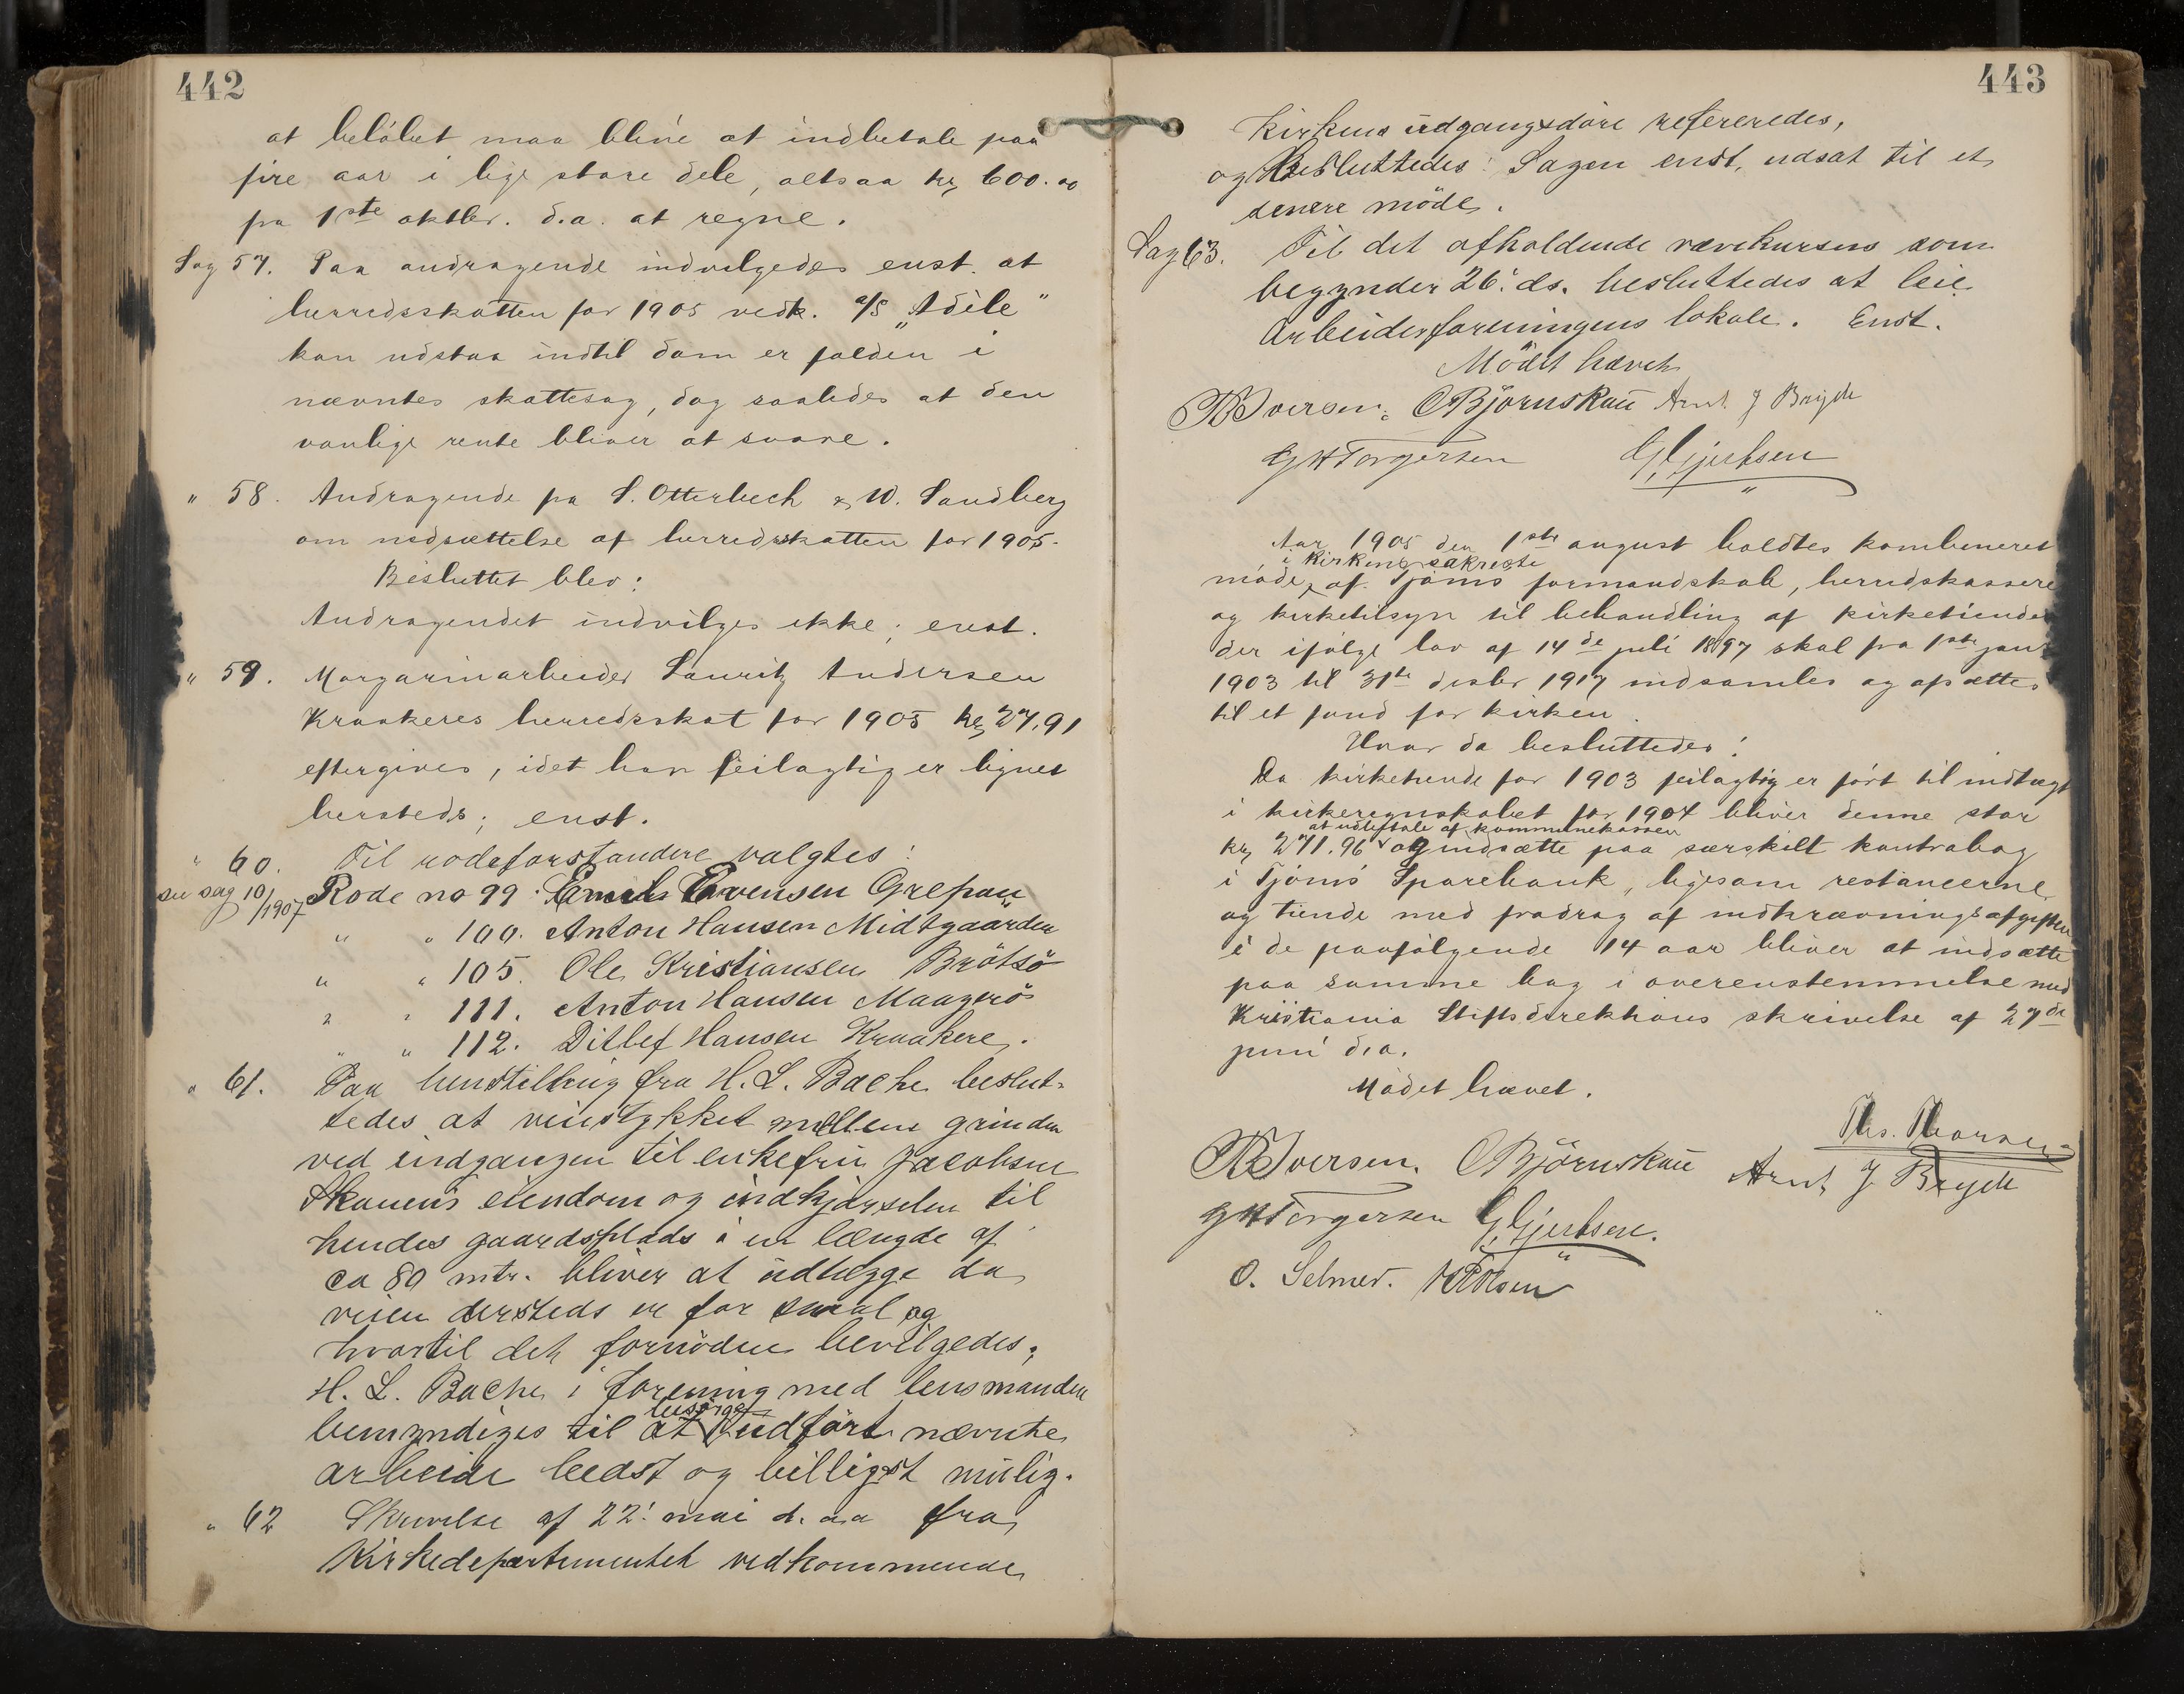 442
at beløbet maa blive at indbetale paa
fire aar i lige store dele, altsaa kr 600.00
fra 1ste oktbr. d.a. at regne.
Sag 57. Paa andragende indvilgedes enst. at
herredsskatten for 1905 vedk. a/s „Adile"
kan udstaa indtil dom er falden i
nævntes skattesag, dog saaledes at den
vanlige rente bliver at svare.
" 58. Andragende fra S. Otterbech & W. Sandberg
om nedsættelse af herredsskatten for 1905.
Besluttet blev:
Andragendet indvilges ikke; enst.
" 59. Margarinarbeider Lauritz Andersen
Kraakeres herredsskat for 1905 kr 27,91
eftergives, idet han feilagtig er lignet
hersteds; enst.
" 60. Til rodeforstandere valgtes:
se sag 10/1907 Rode no 99. Emil Evensen Grepan
" " 100. Anton Hansen Midtgaarden
" " 105. Ole Kristiansen Brötsö
" " 111. Anton Hansen Maagerö
" " 112. Ditlef Hansen Kraakere.
" 61. Paa henstilling fra H. L. Bache beslut-
tedes at veistykket mellem grinden
ved indgangen til enkefru Jacobsen
Skauens eiendom og indkjørselen til
hendes gaardsplads i en længde af
ca 80 mtr. bliver at udlægge da
veien dersteds er for smal og
hvortil det fornödne bevilgedes;
H. L. Bache i forening med lensmanden
besörge
bemyndiges til at udfört nævnte
arbeide bedst og billigst mulig.
" 62 Skrivelse af 22. mai d. aa fra
Kirkedepartementet vedkommende
443
kirkens udgangsdöre refereredes,
og besluttedes: Sagen enst. udsat til et
senere möde.
Sag 63. Til det afholdende vævekursus som
begynder 26. ds. besluttedes at leie
Arbeiderforeningens lokale. Enst.
Mödet hævet
Iversen. OBjörnskau Arnt J Bryde
GHTorgersen G. Gjertsen
Aar 1905 den 1ste august holdtes kombineret
i kirkens sakreste
möde af Tjömö formandskab, herredskassere
og kirketilsyn til behandling af kirketiende
der ifölge lov af 14de juli 1897 skal fra 1ste jan.
1903 til 31te desbr 1917 indsamles og afsættes
til et fond for kirken.
Hvor da besluttedes:
Da kirketiende for 1903 feilagtig er fört til indtægt
i kirkeregnskabet for 1904 bliver denne stor
at udbetale af kommunekassen
kr 271.96 og indsætte paa særskilt kontrabog
i Tjömö Sparebank, ligesom restancerne
og tiende med fradrag af indkrævningsafgiften
i de paafölgende 14 aar bliver at indsætte
paa samme bog i overenstemmelse med
Kristiania Stiftsdirektions skrivelse af 27de
juni d.a.
Mödet hævet.
Ths. Thorsen
Iversen. OBjörnskau Arnt J Bryde
GHTorgersen G. Gjertsen.
O. Selmer. Olsen